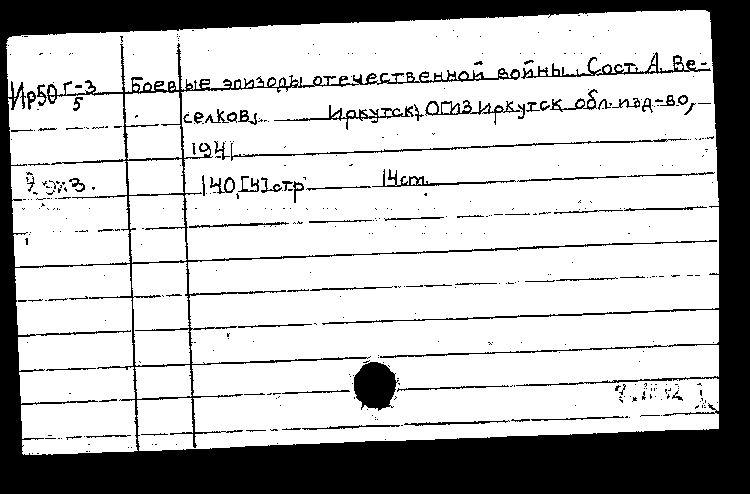 Ир50 Г-3/5 Боевые эпизоды отечественной войны. Сост. А. Ве-
селков, Иркутск, ОГИЗ Иркутск. обл. изд-во,
1941
2 экз. 140,[4]стр. 14см.